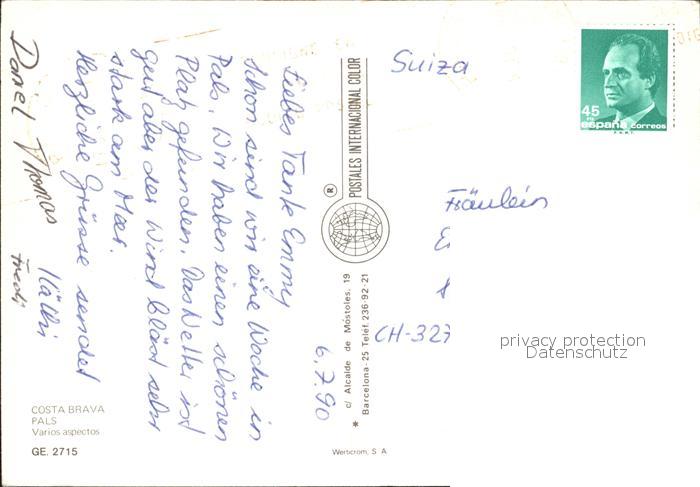 6.7.90
Liebes Tante Emmy
Schon sind wir eine Woche in
Pals. Wir haben einen schönen
Platz gefunden. Das Wetter ist
gut aber der Wind bläst sehr
stark am Meer.
Herzliche Grüsse sendet
Käthi
Fredy
Daniel Thomas
COSTA BRAVA
PALS
Varios aspectos
GE. 2715
POSTALES INTERNACIONAL COLOR
®
c/ Alcalde de Móstoles, 19
Barcelona-25 Telef. 236-92-21
Werticrom, S A
Suiza
Fräulein
E
CH-327
45
PTS
españa correos
F.N.M.T.
privacy protection
Datenschutz